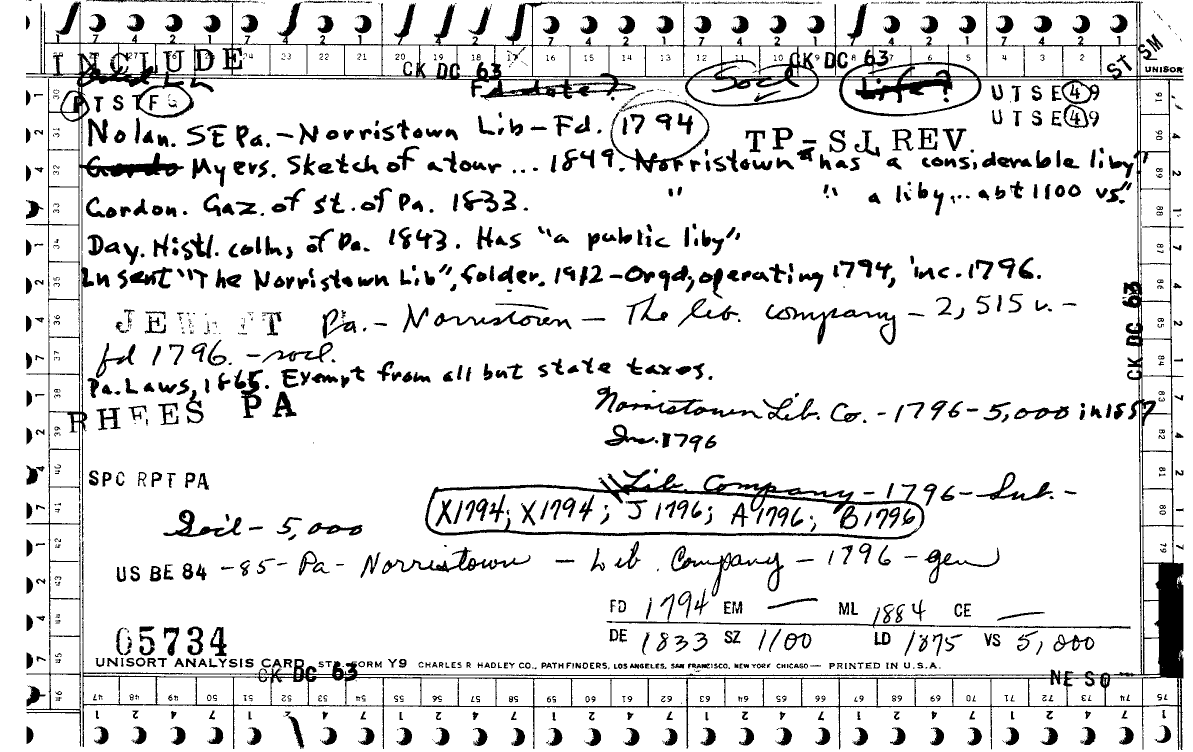 INCLUDE
CK DC 63
CK DC 63
ST SM
UNISORT
Fd date?
Socl
Life?
UTSE49
PTSTFG
UTSE49
Nolan. SE Pa.—Norristown Lib—Fd. 1794
TP-SJ REV.
Gordo Myers. Sketch of a tour ... 1849. Norristown "has "a considerable liby"
Gordon. Gaz. of St. of Pa. 1833. " " a liby... abt 1100 vs."
Day. Histl. collns of Pa. 1843. Has "a public liby"
Ln sent "The Norristown Lib", folder, 1912—Orgd, operating 1794, inc. 1796.
JEWETT Pa.— Norristown — The lib. company — 2,515 v. —
fd 1796. — socl.
Pa. Laws, 1865. Exempt from all but state taxes.
CK DC 63
RHEES PA
Norristown Lib. Co. — 1796 — 5,000 in 1857
Inc. 1796
SPC RPT PA
Lib. Company — 1796 — Sub. —
X1794; X1794; J 1796; A 1796; B 1796
Socl — 5,000
US BE 84 — 85 — Pa — Norristown — Lib. Company — 1796 — gen
FD 1794 EM — ML 1884 CE —
DE 1833 SZ 1100 LD 1875 VS 5,000
05734
UNISORT ANALYSIS CARD STD. FORM Y9 CHARLES R HADLEY CO., PATHFINDERS, LOS ANGELES, SAN FRANCISCO, NEW YORK CHICAGO — PRINTED IN U.S.A.
CK DC 63
NE SO